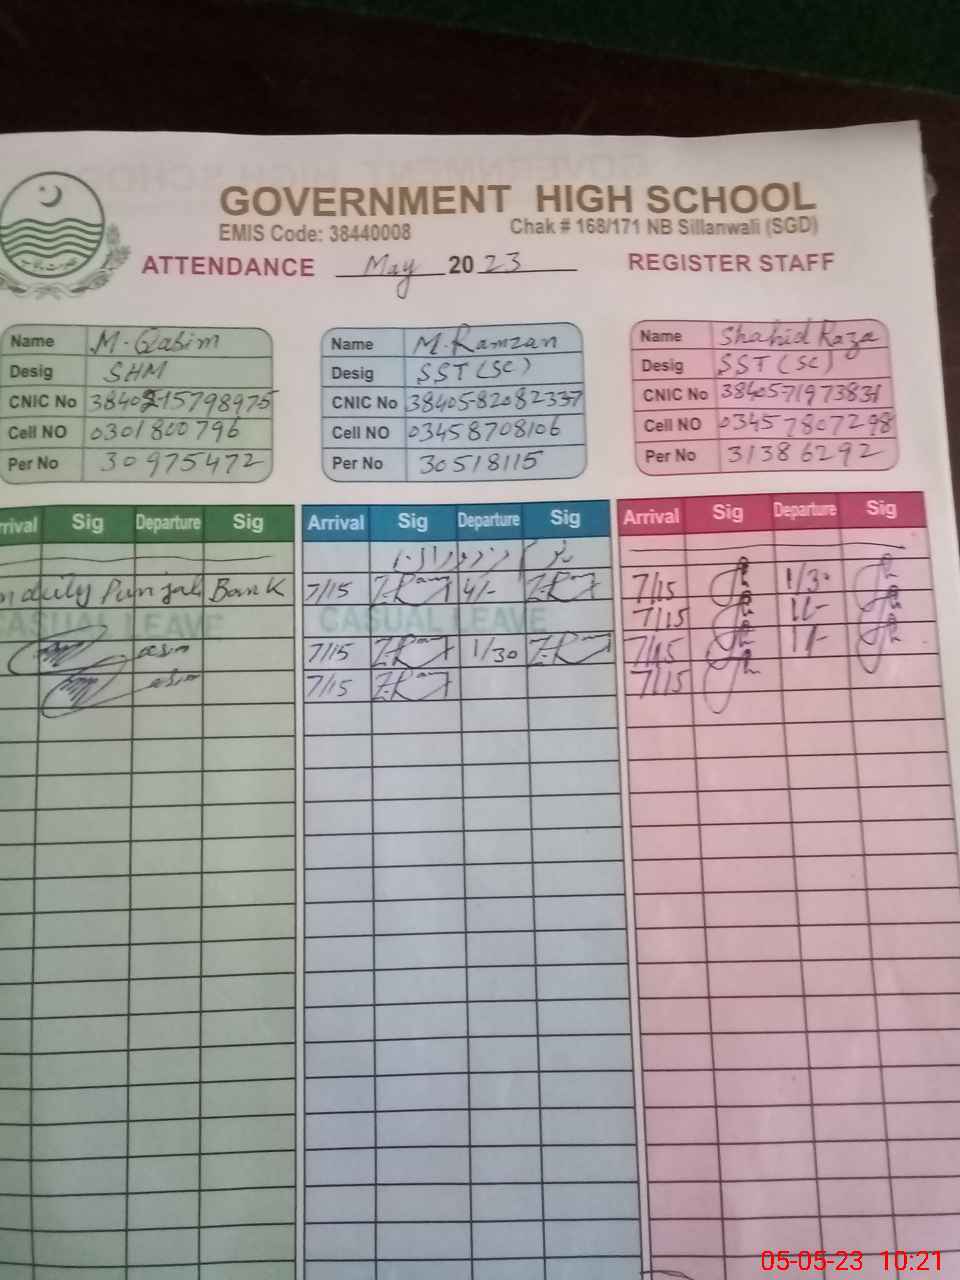 GOVERNMENT HIGH SCHOOL
EMIS Code: 38440008 Chak # 168/171 NB Sillanwali (SGD)
ATTENDANCE May 2023 REGISTER STAFF
Name M. Qasim
Desig SHM
CNIC No 3840215798975
Cell NO 0301800796
Per No 30975472
Name M. Ramzan
Desig SST (SC)
CNIC No 3840582082337
Cell NO 03458708106
Per No 30518115
Name Shahid Raza
Desig SST (SC)
CNIC No 3840571973831
Cell NO 03457807298
Per No 31386292
rrival Sig Departure Sig
n duty Punjab Bank
CASUAL LEAVE
Arrival Sig Departure Sig
7/15 4/-
CASUAL LEAVE
7/15 1/30
7/15
Arrival Sig Departure Sig
7/15 1/30
7/15 1/-
7/15 1/-
7/15
05-05-23 10:21